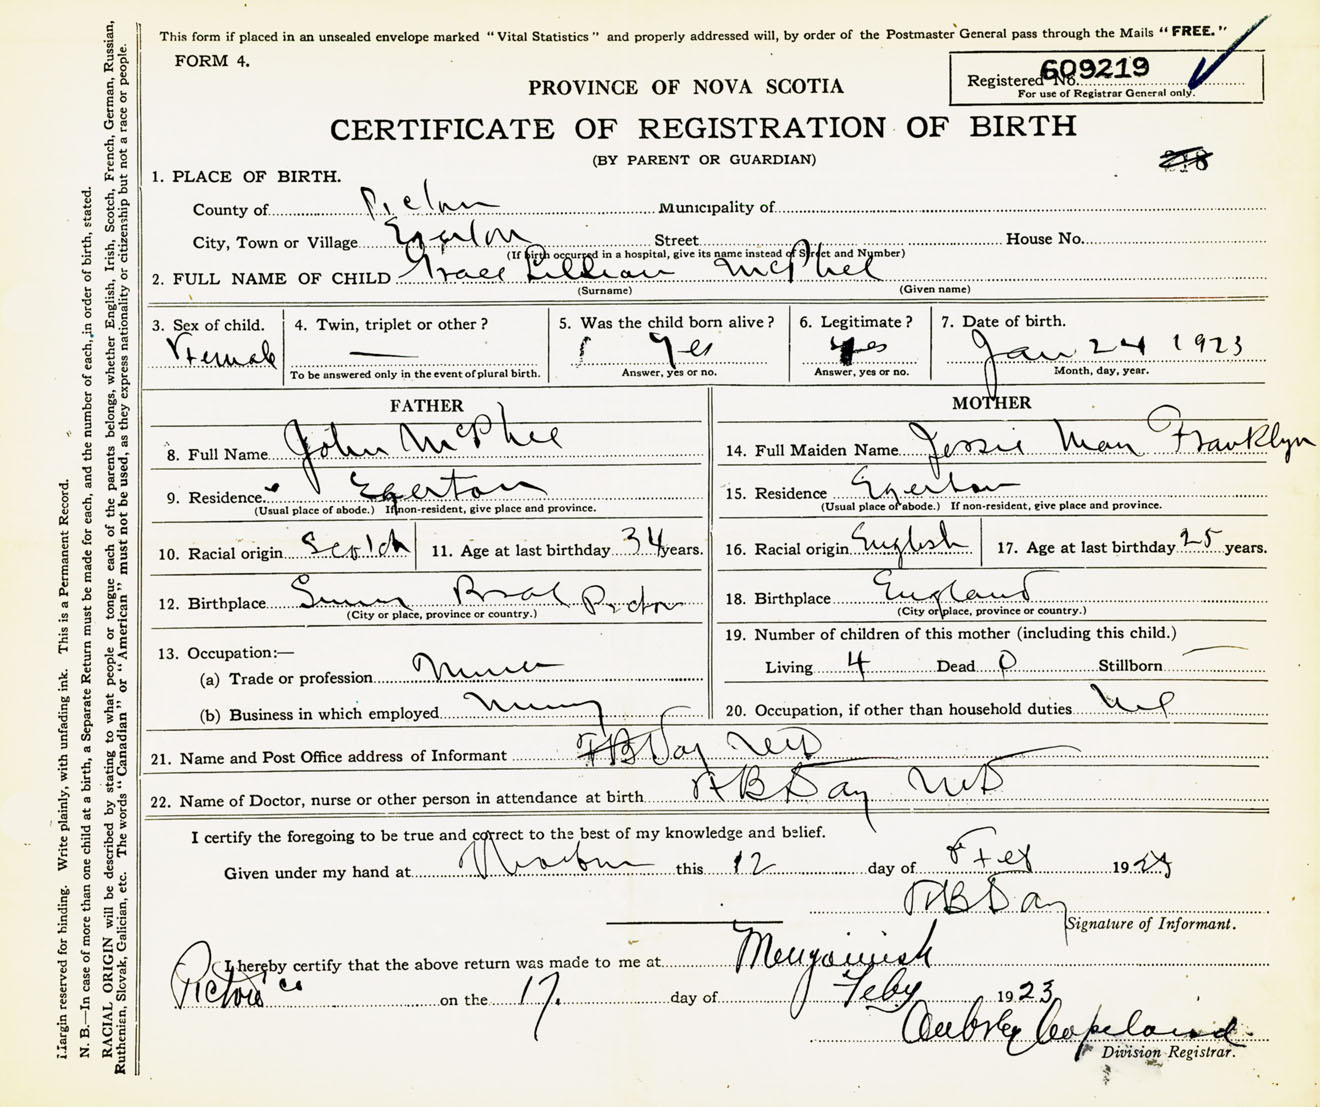 This form if placed in an unsealed envelope marked "Vital Statistics" and properly addressed will, by order of the Postmaster General pass through the Mails "FREE."
FORM 4.
Registered No. 609219
For use of Registrar General only.
PROVINCE OF NOVA SCOTIA
CERTIFICATE OF REGISTRATION OF BIRTH
(BY PARENT OR GUARDIAN)
1. PLACE OF BIRTH.
County of Pictou Municipality of
City, Town or Village Egerton Street House No.
(If birth occurred in a hospital, give its name instead of Street and Number)
2. FULL NAME OF CHILD Grace Lillian McPhee
(Surname) (Given name)
3. Sex of child. Female
4. Twin, triplet or other? —
To be answered only in the event of plural birth.
5. Was the child born alive? Yes
Answer, yes or no.
6. Legitimate? Yes
Answer, yes or no.
7. Date of birth. Jan 24 1923
Month, day, year.
FATHER
8. Full Name John McPhee
9. Residence Egerton
(Usual place of abode.) If non-resident, give place and province.
10. Racial origin Scotch 11. Age at last birthday 34 years.
12. Birthplace Pictou
(City or place, province or country.)
13. Occupation:—
(a) Trade or profession Miner
(b) Business in which employed Mining
MOTHER
14. Full Maiden Name Jessie May Franklyn
15. Residence Egerton
(Usual place of abode.) If non-resident, give place and province.
16. Racial origin English 17. Age at last birthday 25 years.
18. Birthplace England
(City or place, province or country.)
19. Number of children of this mother (including this child.)
Living 4 Dead 0 Stillborn —
20. Occupation, if other than household duties Nil
21. Name and Post Office address of Informant Day MD
22. Name of Doctor, nurse or other person in attendance at birth Day MD
I certify the foregoing to be true and correct to the best of my knowledge and belief.
Given under my hand at Thorburn this 12 day of Feb 1923
Day
Signature of Informant.
I hereby certify that the above return was made to me at Merigomish
Pictou Co on the 17. day of Feby 1923
Aubrey Copeland
Division Registrar.
Margin reserved for binding. Write plainly, with unfading ink. This is a Permanent Record.
N. B.—In case of more than one child at a birth, a Separate Return must be made for each, and the number of each, in order of birth, stated.
RACIAL ORIGIN will be described by stating to what people or tongue each of the parents belongs, whether English, Irish, Scotch, French, German, Russian,
Ruthenian, Slovak, Galician, etc. The words "Canadian" or "American" must not be used, as they express nationality or citizenship but not a race or people.